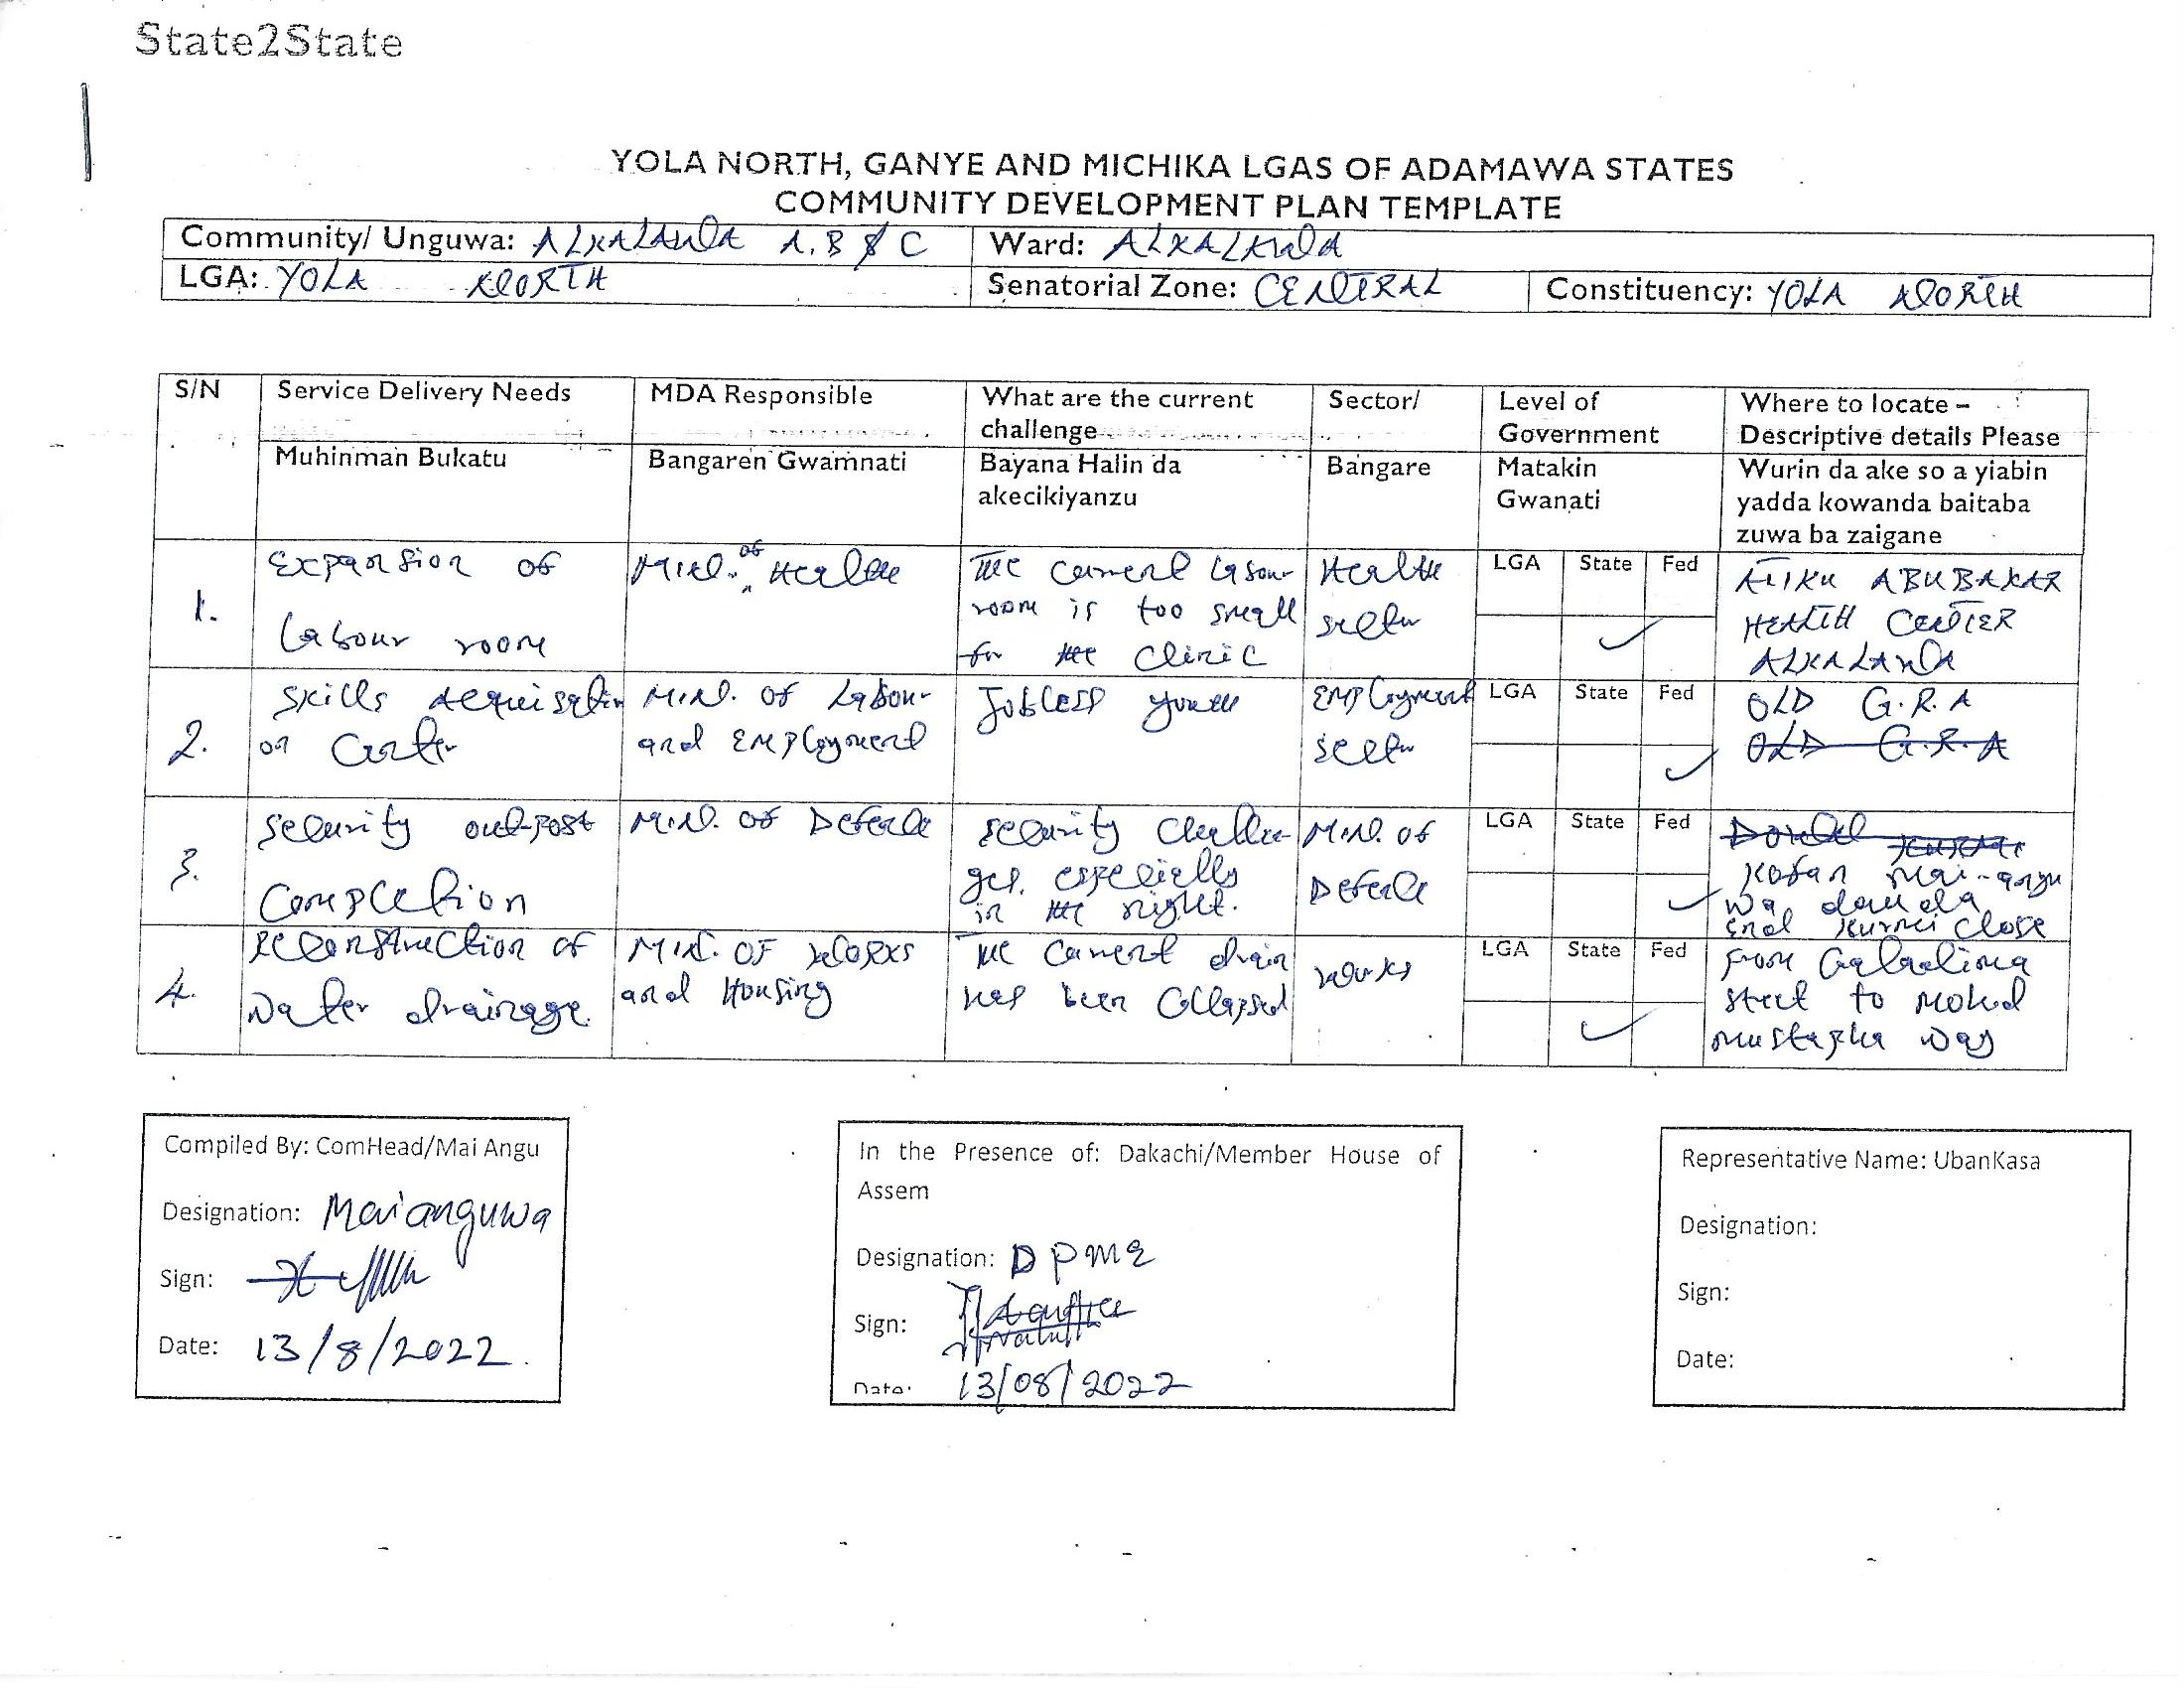 State2State
YOLA NORTH, GANYE AND MICHIKA LGAS OF ADAMAWA STATES
COMMUNITY DEVELOPMENT PLAN TEMPLATE
Community/ Unguwa: ALKALAWA A, B & C Ward: ALKALAWA
LGA: YOLA NORTH Senatorial Zone: CENTRAL Constituency: YOLA NORTH
S/N Service Delivery Needs MDA Responsible What are the current challenge Sector/ Level of Government Where to locate – Descriptive details Please
Muhinman Bukatu Bangaren Gwamnati Bayana Halin da akecikiyanzu Bangare Matakin Gwanati Wurin da ake so a yiabin yadda kowanda baitaba zuwa ba zaigane
1. Expansion of Labour room Min. of Health The current labour room is too small for the clinic Health sector LGA State ✓ Fed ATIKU ABUBAKAR HEALTH CENTER ALKALAWA
2. Skills Acquisition Center Min. of Labour and Employment Jobless youth Employment sector LGA State Fed ✓ OLD G.R.A OLD G.R.A
3. Security out-post Completion Min. of Defence Security Challenges, especially in the night. Min. of Defence LGA State Fed ✓ Kofan mai-angu wa dauda end Kurmi close
4. Reconstruction of Water drainage. Min. of Works and Housing The current drain has been Collapsed works LGA State ✓ Fed From Galadima street to Mohd Mustapha way
Compiled By: ComHead/Mai Angu
Designation: Maianguwa
Sign:
Date: 13/8/2022.
In the Presence of: Dakachi/Member House of
Assem
Designation: DPME
Sign:
Date: 13/08/2022
Representative Name: UbanKasa
Designation:
Sign:
Date: